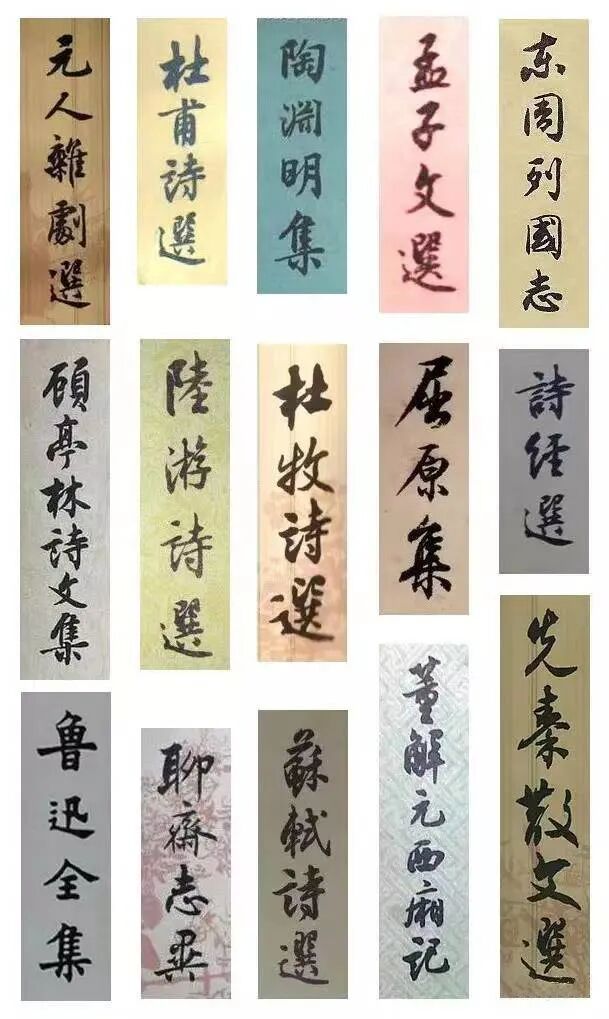 元人雜劇選
杜甫詩選
陶淵明集
孟子文選
东周列國志
顧亭林詩文集
陸游詩選
杜牧詩選
屈原集
詩经選
鲁迅全集
聊齋志異
蘇軾詩選
董解元西厢記
先秦散文選